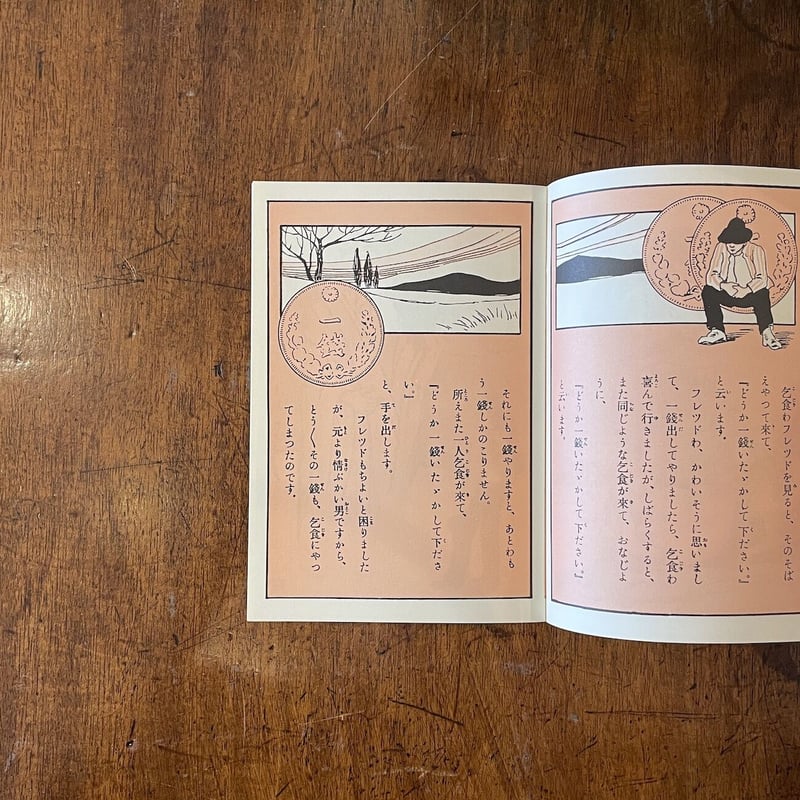 乞食わフレツドを見ると、そのそば
えやつて来て、
『どうか一錢いたゞかして下ださい。』
と云います。
フレツドわ、かわいそうに思いまし
て、一錢出してやりましたら、乞食わ
喜んで行きましたが、しばらくすると、
また同じような乞食が來て、おなじよ
うに、
『どうか一錢いたゞかして下ださい。』
と云います。
一錢
それにも一錢やりますと、あとわも
う一錢しかのこりません。
所えまた一人乞食が來て、
『どうか一錢いたゞかして下ださ
い。』
と、手を出します。
フレツドもちよいと困りました
が、元より情ぶかい男ですから、
とう〳〵その一錢も、乞食にやつ
てしまつたのです。